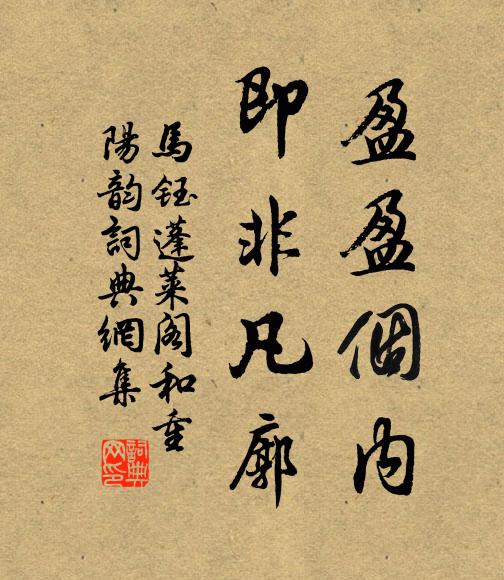 盈盈個內
即非凡廓
馬鈺蓬萊閣和重
陽韵詞典網集
詞典網印